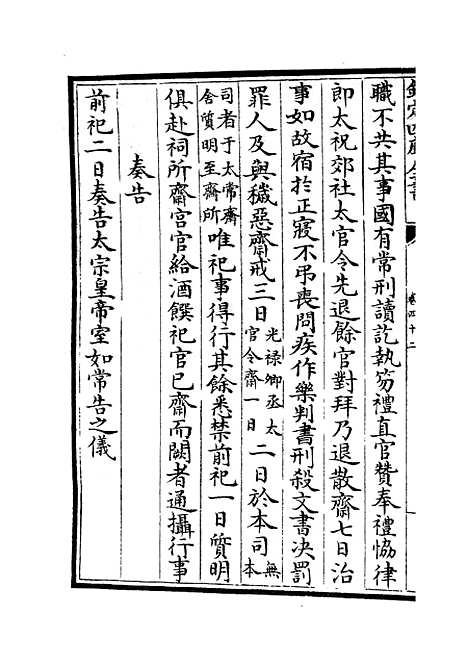 欽定四庫全書
卷四十二
職不共其事國有常刑讀訖執笏禮直官贊奉禮恊律
郎太祝郊社太官令先退餘官對拜乃退散齋七日治
事如故宿於正寢不弔喪問疾作樂判書刑殺文書決罰
罪人及與穢惡齋戒三日光禄卿丞太官令齋一日二日於本司無本
司者于太常齋舍質明至齋所唯祀事得行其餘悉禁前祀一日質明
俱赴祠所齋宮官給酒饌祀官已齋而闕者通攝行事
奏告
前祀二日奏告太宗皇帝室如常告之儀